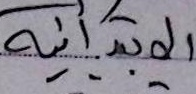 الابتدائيه